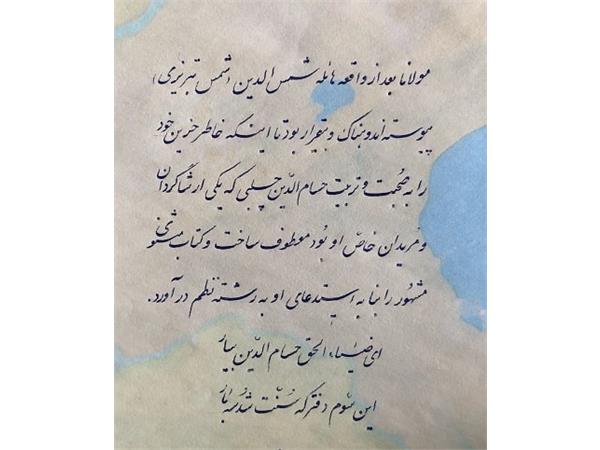 مولانا بعد از واقعه هائله شمس الدین (شمس تبریزی)
پیوسته اندوهناک و بیقرار بود تا اینکه خاطر حزین خود
را به صحبت و تربیت حسام الدّین چلبی که یکی از شاگردان
و مریدان خاصّ او بُود معطوف ساخت و کتاب مثنوی
مشهُور را بنا به استدعای او به رشته نظم در آورد.
ای ضیاء الحق حسام الدّین بیار
این سّوم دفتر که سُنّت شد سه بار